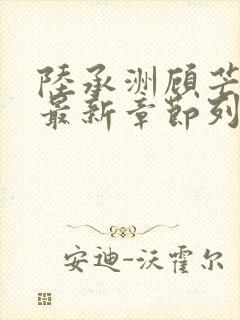 陸承洲顾芒
最新章節列
安迪-沃霍尔